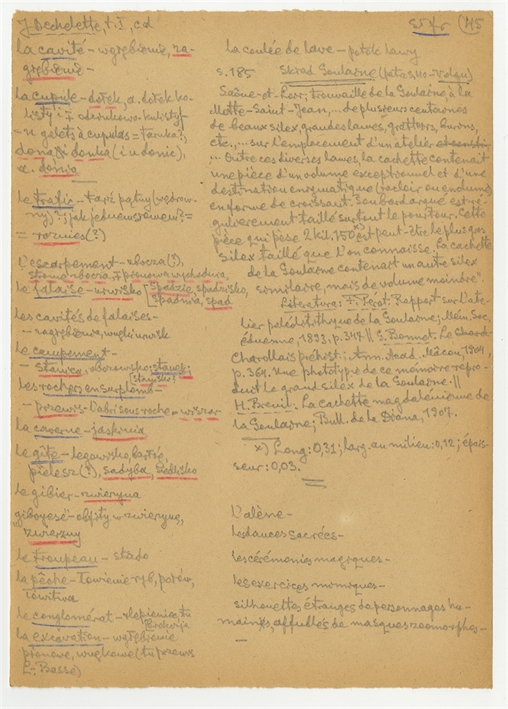 J. Dechelette, t. I, cd
La cavité – wgrębienie, za-
grębienie –
La cupule – dołek, a. dołek ko-
listy; i
– u galets à cupules = famka?;
donazi donka (i u donic),
a. donia
Le tradis – Taxé pątny (wędrow-
ny)?; jak jednew srewem? =
= roznies(?)
L'escarpement – zbocza(?),
Le falaise – urwisko – spadzie, spadzisko,
spadnia, spad.
Les cavités de falaises –
– zagrębienia, wnęki urwisk
Le campement –
– stanica, obozowisko; stanek;
(stanisko?)
Les rochers en surplomb –
– przewis – L'abri sous roche = wiszar
La caverne – jaskinia
Le gîte – legowisko, barłóg,
pielesz(?), sadyba, siedlisko
Le gibier – zwierzyna
giboyesé – obfity w zwierzynę,
zwierzny
Le troupeau – stado
La pêche – łowienie ryb, połów,
łowitwa
Le conglomérat – zlepieniec, tu
La excavation – wgłębienie
pionowe, wnękowe (tu przewis
L. Basse)
La coulée de lave – potok lawy
s. 185 Skład Goulaine (
Saône-et-Loir, trouvaille de la Goulaine à la
Motte-Saint-Jean, ... de plusieurs centaines
de beaux silex, grandes lames, grattoirs, burins,
etc., ... sur l'emplacement d'un atelier
... Outre ces diverses lames, la cachette contenait
une pièce d'un volume exceptionnel et d'une
destination enigmatique (racloir ou enclume)
en forme de croissant. Son bord arqué est ré-
gulièrement taillé sur tout le pourtour. Cette
pièce qui pèse 2 kil. 150 x) est peut-être le plus gros
silex taillé que l'on connaisse. La cachette
de la Goulaine contenait un autre silex
similaire, mais de volume moindre.
Literatura: F. Perot. Rapport sur l'ate-
lier paléolithique de la Goulaine; Mém. Soc.
éduenne, 1893, p. 347 || S. Bonnet. Le Char-
Chardllais préhist.; Ann. Acad. Mâcon, 1904
p. 364. Une phototypie de ce mémoire repro-
duit le grand silex de la Goulaine. ||
H. Breuil. La cachette magdalénienne de
la Goulaine; Bull. de la Diana, 1907.
x) Long: 0,31; larg. au milieu: 0,12; épais-
seur: 0,03.
L'alène –
Les dances sacrées –
Les cérémonies magiques –
Les exercices mimiques –
silhouettes étranges de personnages hu-
mains, affublés de masques zoomorphes –